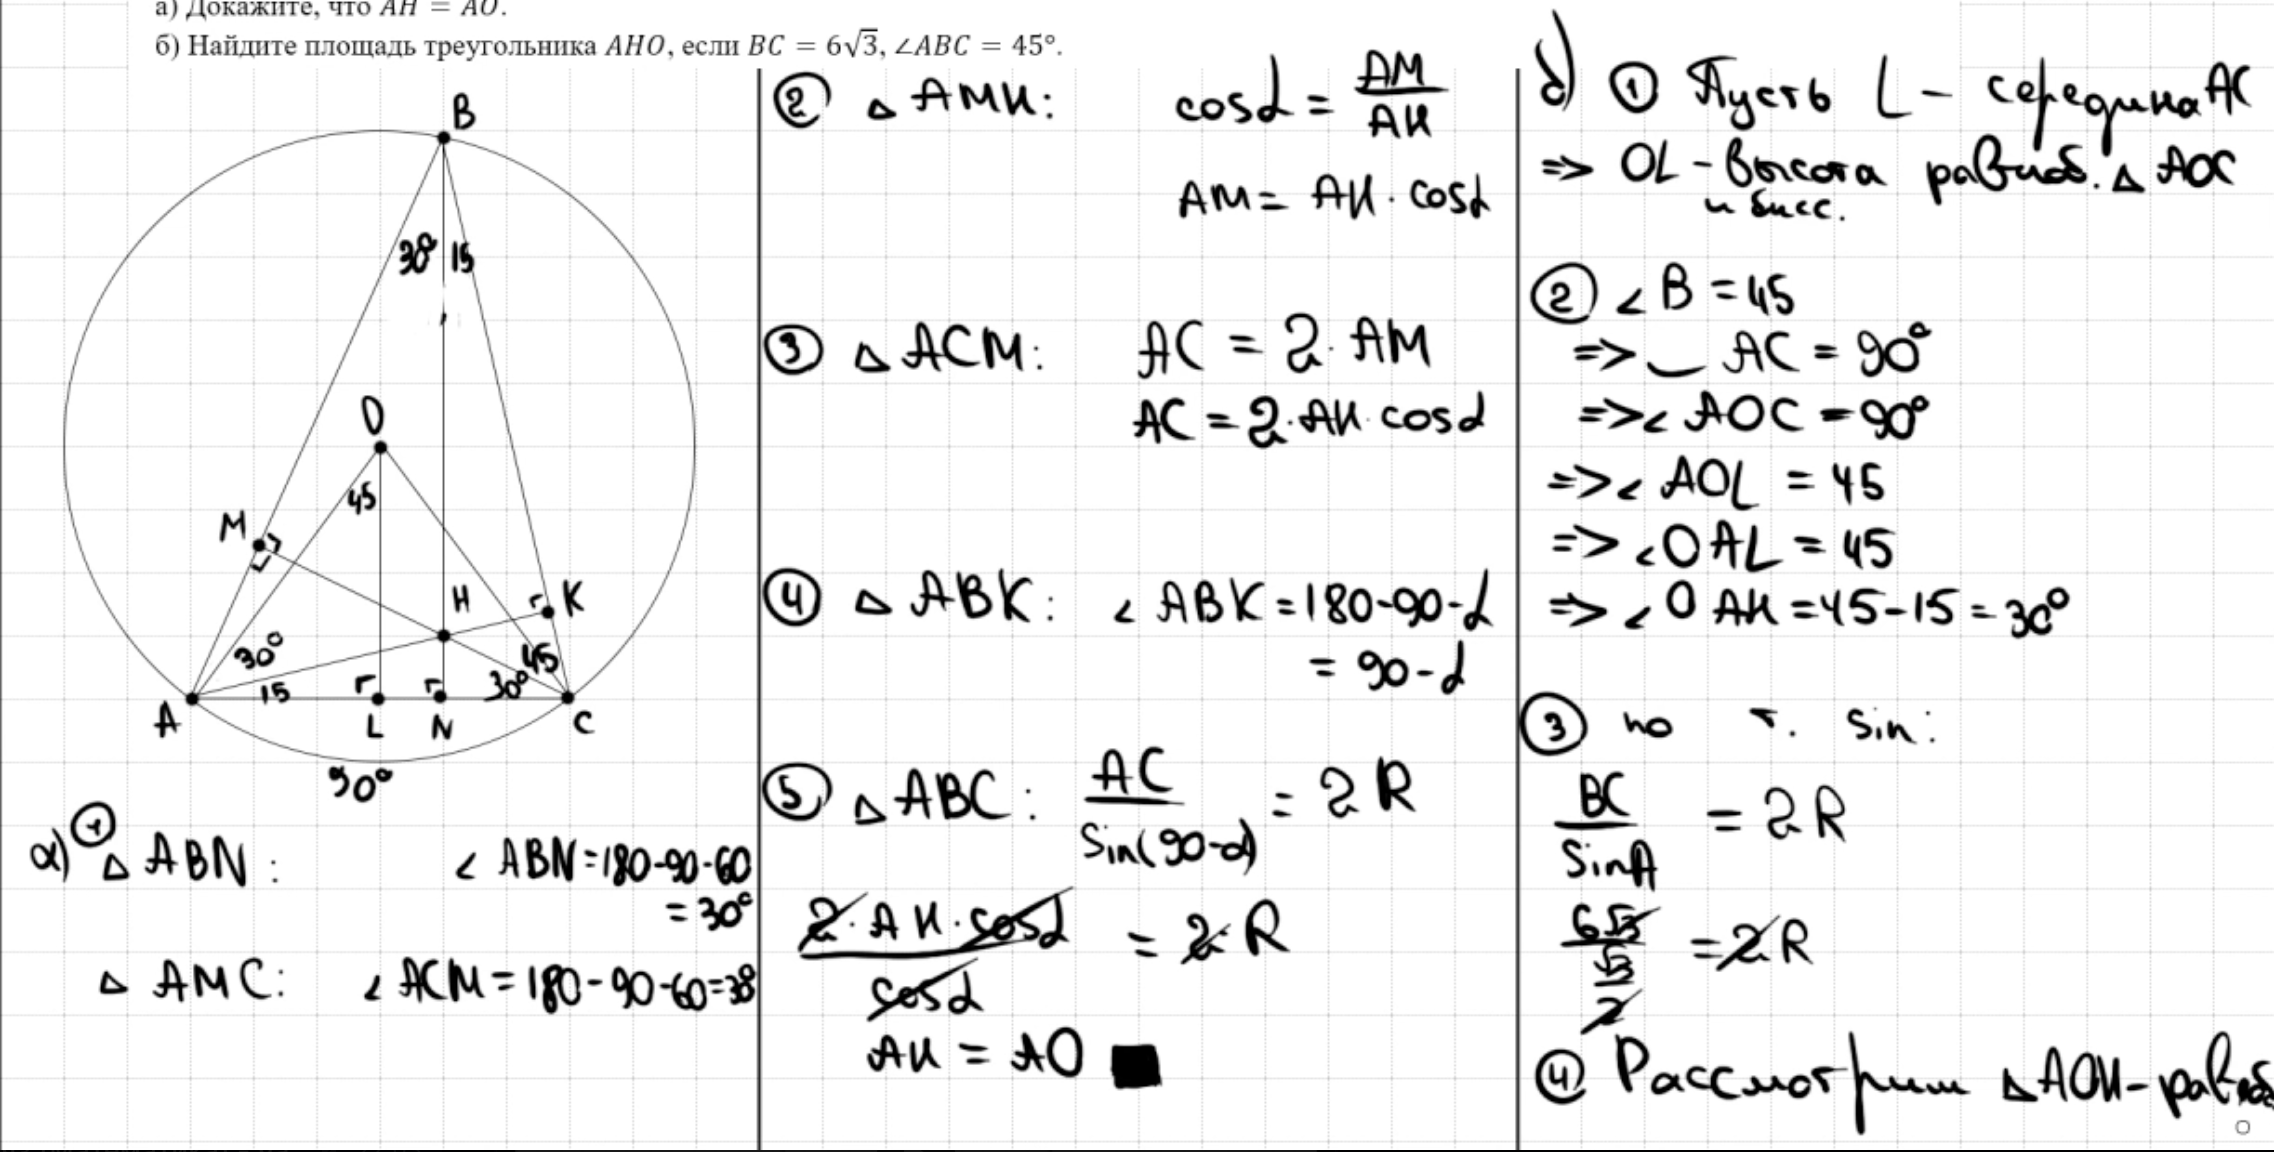 а) Докажите, что AH = AO.
б) Найдите площадь треугольника AHO, если BC = 6√3, ∠ABC = 45°.
B
30° 15
O
45
M
H
K
30°
45
15
30°
A
L
N
C
90°
а) 1
△ ABN: ∠ ABN = 180-90-60
= 30°
△ AMC: ∠ ACM = 180-90-60=30
② △ AMH: cosα = AM/AH
AM = AH · cosα
③ △ ACM: AC = 2 · AM
AC = 2 · AH · cosα
④ △ ABK: ∠ ABK = 180-90-α
= 90-α
⑤ △ ABC: AC/Sin(90-α) = 2R
2 · AH · cosα/cosα = 2R
AH = AO ■
б) ① Пусть L - середина AC
=> OL - высота равноб. △ AOC
и бисс.
② ∠ B = 45
=> ◡ AC = 90°
=> ∠ AOC = 90°
=> ∠ AOL = 45
=> ∠ OAL = 45
=> ∠ OAH = 45-15 = 30°
③ по т. Sin:
BC/SinA = 2R
6√3/(√3/2) = 2R
④ Рассмотрим △ AOH - равноб